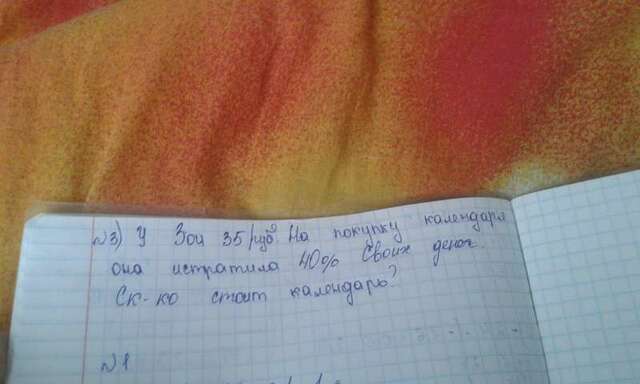 №3) У Зои 35 руб. На покупку календаря
она истратила 40% своих денег.
Ск-ко стоит календарь?
№1